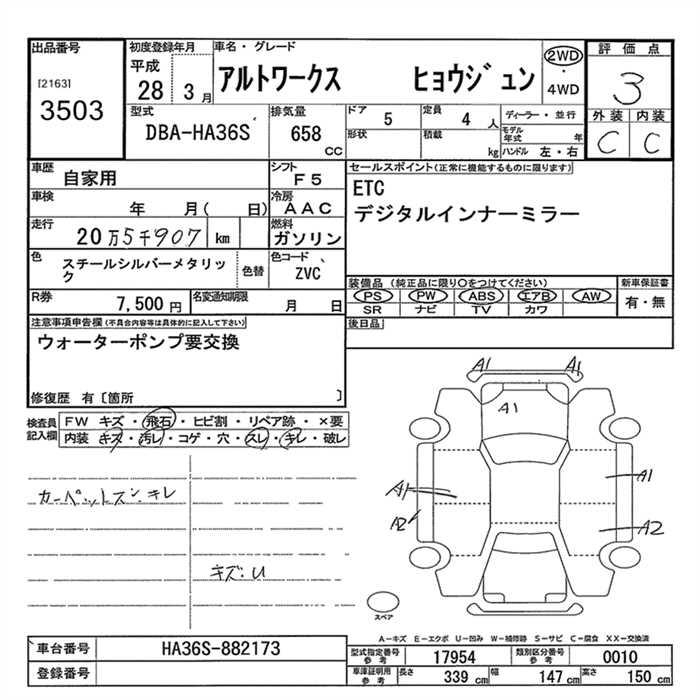 出品番号
[2163]
3503
初度登録年月
平成
28 3 月
車名・グレード
アルトワークス ヒョウジュン
2WD
・
4WD
評価点
3
外装 内装
C C
型式
DBA-HA36S
排気量
658
CC
ドア 5
形状
定員 4 人
積載 kg
ディーラー・並行
モデル年式 年
ハンドル 左・右
車歴
自家用
シフト
F5
車検
年 月( 日)
冷房
AAC
走行
20万5千907 km
燃料
ガソリン
色
スチールシルバーメタリック
色替
色コード
ZVC
R券
7,500 円
名変通知期限
月 日
セールスポイント(正常に機能するものに限ります)
ETC
デジタルインナーミラー
装備品 (純正品に限り○をつけてください)
PS PW ABS エアB AW
SR ナビ TV カワ
新車保証書
有・無
後日品
注意事項申告欄(不具合内容等は具体的に記入して下さい)
ウォーターポンプ要交換
修復歴 有〔箇所 〕
検査員
記入欄
FW キズ・飛石・ヒビ割・リペア跡・×要
内装 キズ・汚レ・コゲ・穴・スレ・キレ・破レ
カーペットズレ・キレ
キズ・U
A1 A1
A1
A1
A1
A2
A2
スペア
A-キズ E-エクボ U-凹み W-補修跡 S-サビ C-腐食 XX-交換済
車台番号 HA36S-882173
登録番号
型式指定番号
参考
17954
類別区分番号
参考
0010
車庫証明用
参考
長さ 339 cm 幅 147 cm 高さ 150 cm